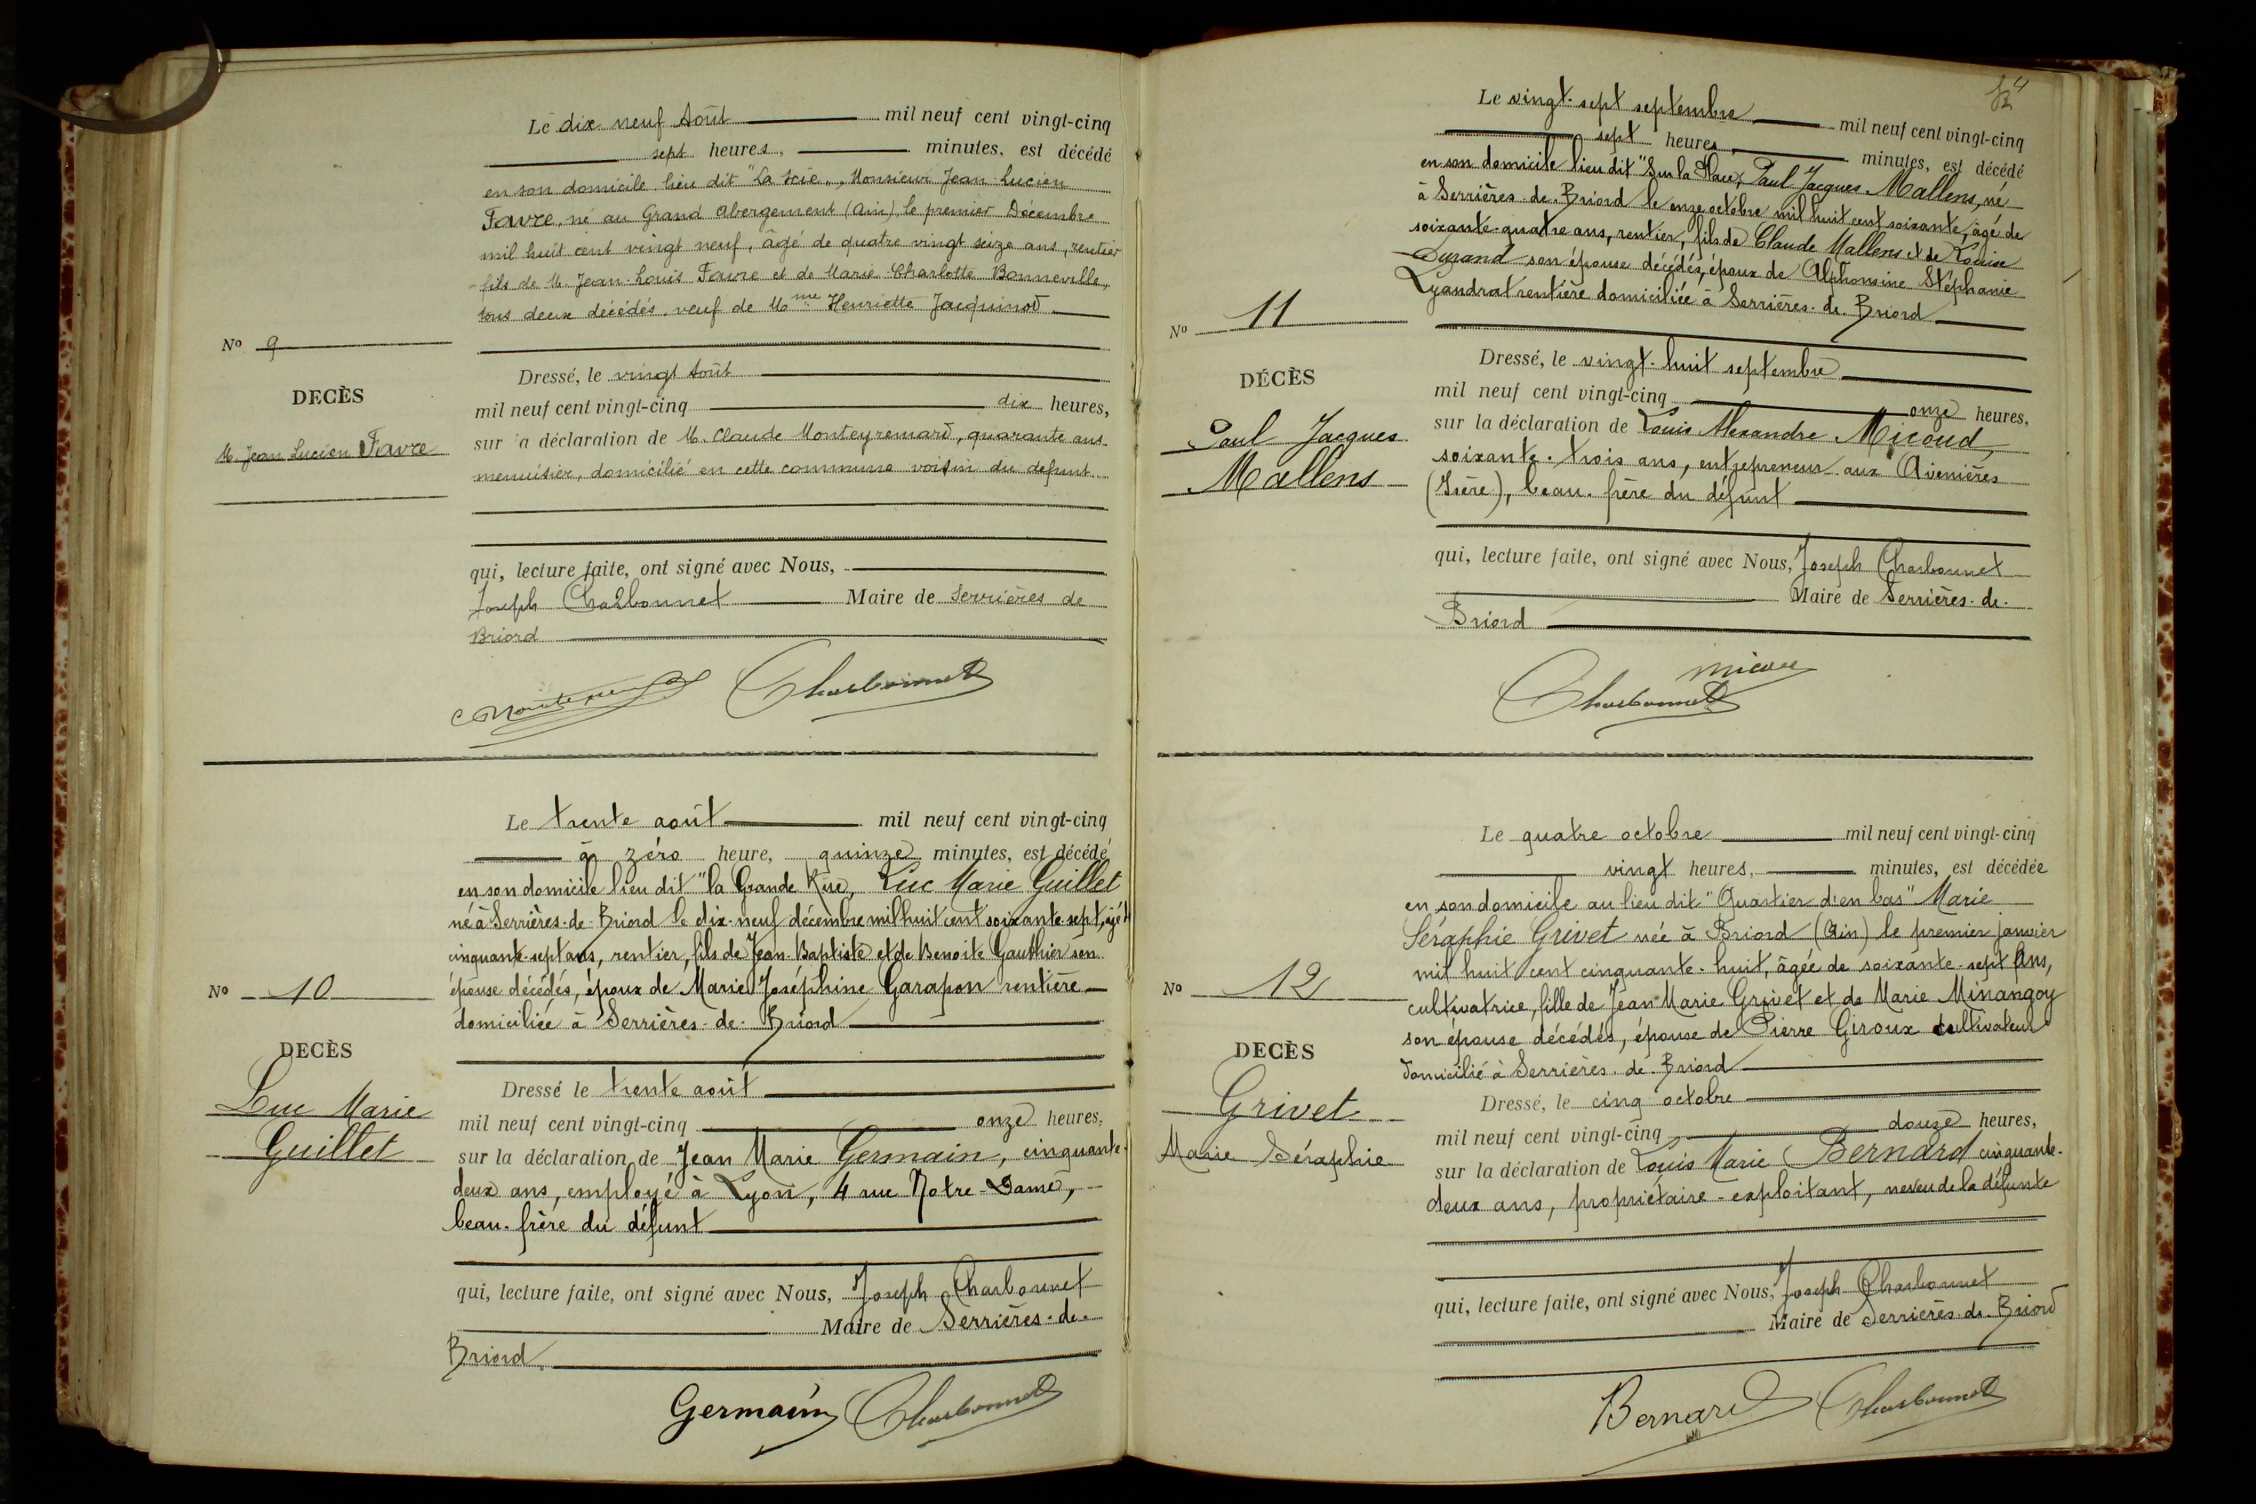 Le dix neuf Août mil neuf cent vingt-cinq
sept heures, minutes, est décédé
en son domicile lieu dit "La Scie", Monsieur Jean Lucien
Favre, né au Grand Abergement (Ain), le premier Décembre
mil huit cent vingt neuf, âgé de quatre vingt seize ans, rentier
fils de M. Jean-Louis Favre et de Marie Charlotte Bonneville,
tous deux décédés. veuf de Mme Henriette Jacquinod
No 9
DECÈS
M. Jean Lucien Favre
Dressé, le vingt Août
mil neuf cent vingt-cinq dix heures,
sur la déclaration de M. Claude Monteyremard, quarante ans
menuisier, domicilié en cette commune voisin du defunt
qui, lecture faite, ont signé avec Nous,
Joseph Charbonnet Maire de Serrières de
Briord
Charbonnet
Le trente août mil neuf cent vingt-cinq
à zéro heure, quinze minutes, est décédé
en son domicile lieu dit "la Grande Rue, Luc Marie Guillet
né à Serrières-de-Briord le dix-neuf décembre mil huit cent soixante-sept, âgé d
cinquante-sept ans, rentier, fils de Jean Baptiste et de Benoite Gauthier son
épouse décédés, époux de Marie Joséphine Garapon rentière
domiciliée à Serrières-de-Briord
No 10
DECÈS
Luc Marie
Guillet
Dressé le trente août
mil neuf cent vingt-cinq onze heures,
sur la déclaration de Jean Marie Germain, cinquante-
deux ans, employé à Lyon, 4 rue Notre-Dame,
beau-frère du défunt
qui, lecture faite, ont signé avec Nous, Joseph Charbonnet
Maire de Serrières-de-
Briord
Germain Charbonnet
Le vingt-sept septembre mil neuf cent vingt-cinq
sept heures minutes, est décédé
en son domicile lieu dit "Sur la Place, Paul Jacques Mallens, né
à Serrières-de-Briord le onze octobre mil huit cent soixante, âgé de
soixante-quatre ans, rentier, fils de Claude Mallens et de Louise
Durand son épouse décédés, époux de Alphonsine Stéphanie
Lyandrat rentière domiciliée à Serrières-de-Briord
No 11
DÉCÈS
Paul Jacques
Mallens
Dressé, le vingt-huit septembre
mil neuf cent vingt-cinq onze heures,
sur la déclaration de Louis Alexandre Micoud,
soixante-trois ans, entrepreneur aux Avenières
(Isère), beau-frère du défunt
qui, lecture faite, ont signé avec Nous, Joseph Charbonnet
Maire de Serrières-de-
Briord
Micoud
Charbonnet
Le quatre octobre mil neuf cent vingt-cinq
vingt heures, minutes, est décédée
en son domicile au lieu dit "Quartier d'en bas" Marie
Séraphie Grivet née à Briord (Ain) le premier janvier
mil huit cent cinquante-huit, âgée de soixante-sept ans,
cultivatrice, fille de Jean-Marie Grivet et de Marie Minangoy
son épouse décédés, épouse de Pierre Giroux cultivateur
domicilié à Serrières-de-Briord
No 12
DECÈS
Grivet
Marie Séraphie
Dressé, le cinq octobre
mil neuf cent vingt-cinq douze heures,
sur la déclaration de Louis Marie Bernard cinquante-
deux ans, propriétaire-exploitant, neveu de la défunte
qui, lecture faite, ont signé avec Nous, Joseph Charbonnet
Maire de Serrières-de-Briord
Bernard Charbonnet